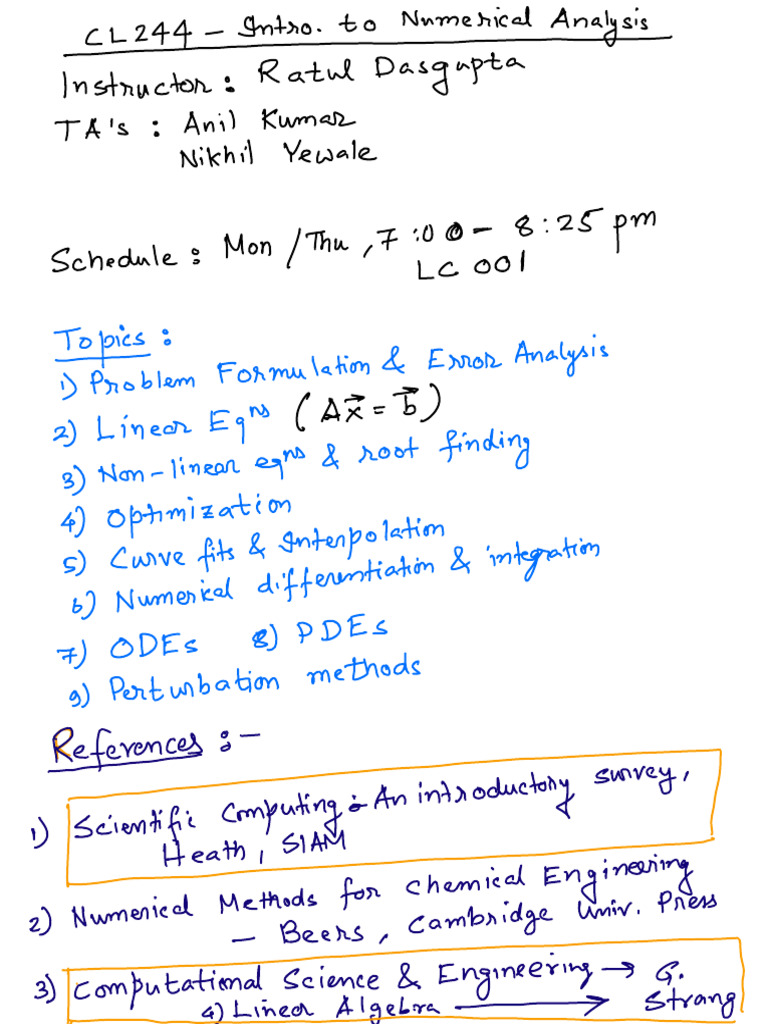 CL244 – Intro. to Numerical Analysis
Instructor : Ratul Dasgupta
TA's : Anil Kumar
Nikhil Yewale
Schedule : Mon / Thu , 7:00 – 8:25 pm
LC 001
Topics :
1) Problem Formulation & Error Analysis
2) Linear Eqns (Ax⃗ = b⃗)
3) Non-linear eqns & root finding
4) Optimization
5) Curve fits & Interpolation
6) Numerical differentiation & integration
7) ODEs 8) PDEs
9) Perturbation methods
References :-
1) Scientific Computing : An introductory survey,
Heath, SIAM
2) Numerical Methods for Chemical Engineering
– Beers, Cambridge Univ. Press
3) Computational Science & Engineering → G.
4) Linear Algebra → Strang